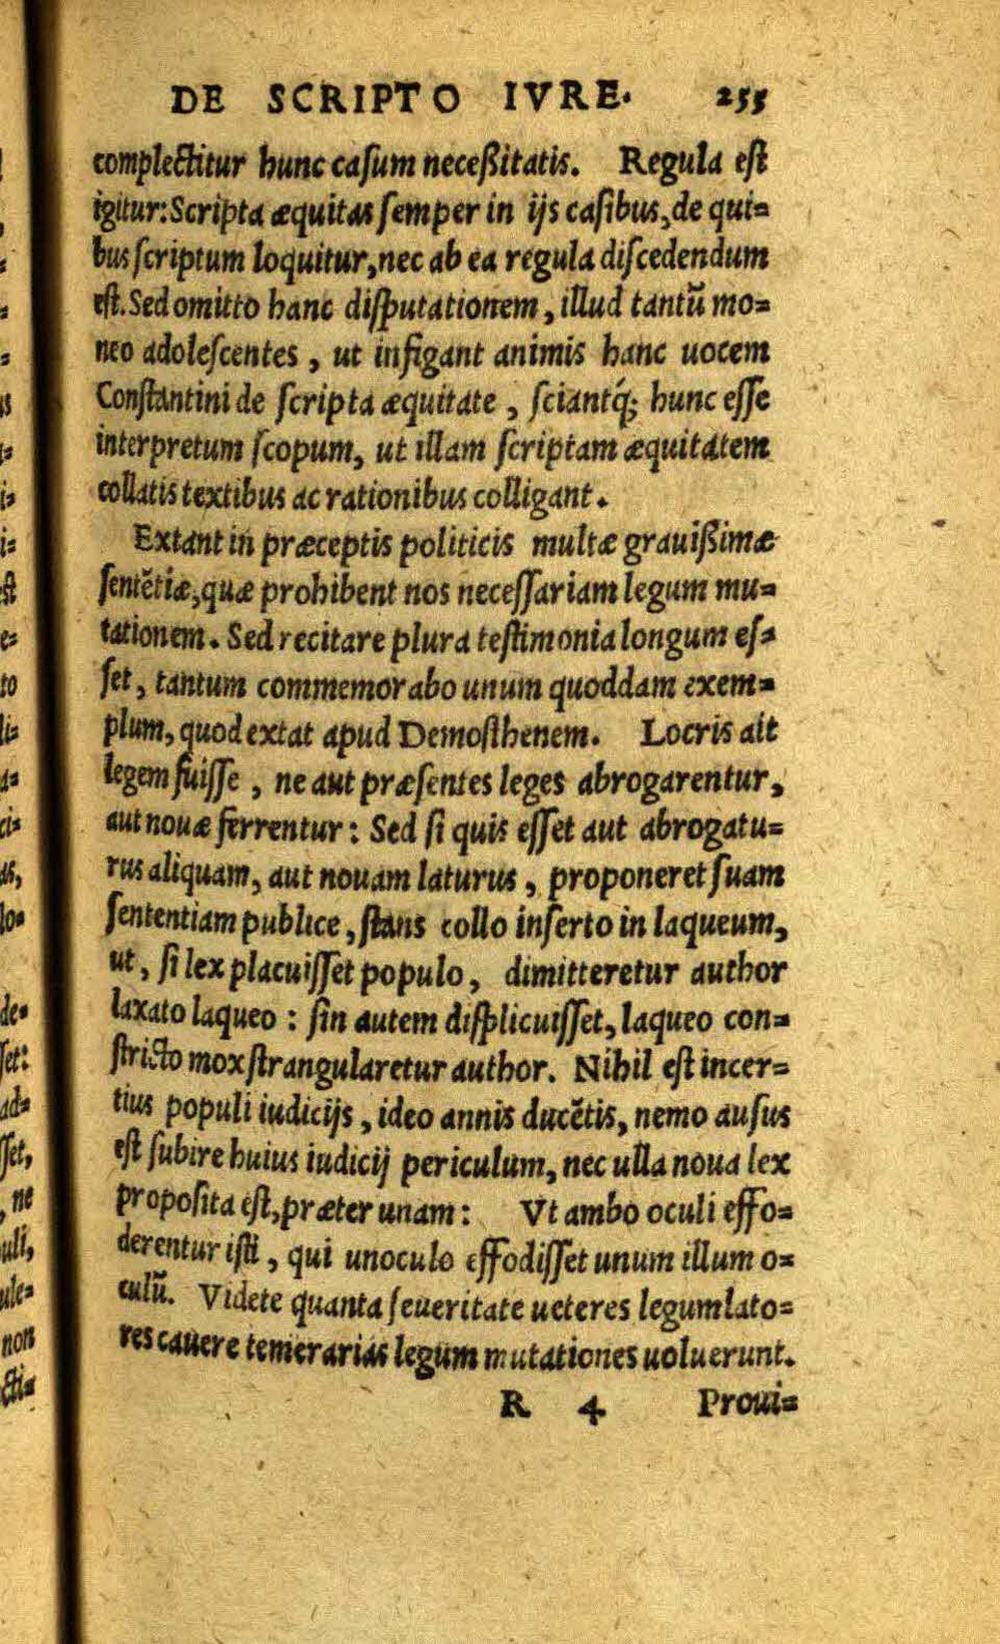 DE SCRIPTO IVRE. 255
complectitur hunc casum neceßitatis. Regula est
igitur: Scripta æquitas semper in ijs casibus, de qui=
bus scriptum loquitur, nec ab ea regula discedendum
est. Sed omitto hanc disputationem, illud tantũ mo=
neo adolescentes, ut infigant animis hanc uocem
Constantini de scripta æquitate, sciantq́; hunc esse
interpretum scopum, ut illam scriptam æquitatem
collatis textibus ac rationibus colligant.
Extant in præceptis politicis multæ grauißimæ
sentẽtiæ, quæ prohibent nos necessariam legum mu=
tationem. Sed recitare plura testimonia longum es=
set, tantum commemorabo unum quoddam exem=
plum, quod extat apud Demosthenem. Locris ait
legem fuisse, ne aut præsentes leges abrogarentur,
aut nouæ ferrentur: Sed si quis esset aut abrogatu=
rus aliquam, aut nouam laturus, proponeret suam
sententiam publice, stans collo inserto in laqueum,
ut, si lex placuisset populo, dimitteretur author
laxato laqueo: sin autem displicuisset, laqueo con=
stricto mox strangularetur author. Nihil est incer=
tius populi iudicijs, ideo annis ducẽtis, nemo ausus
est subire huius iudicij periculum, nec ulla noua lex
proposita est, præter unam: Vt ambo oculi effo=
derentur isti, qui unoculo effodisset unum illum o=
culũ. Videte quanta seueritate ueteres legumlato=
res cauere temerarias legum mutationes uoluerunt.
R 4 Proui=